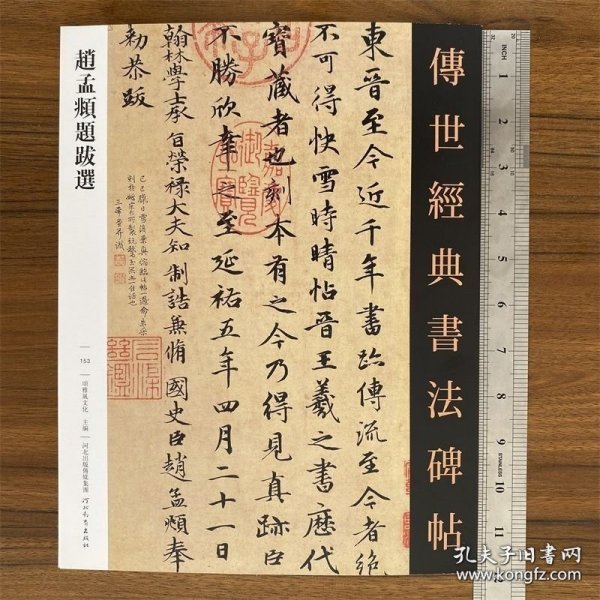 傳世經典書法碑帖
東晉至今近千年書跡傳流至今者絕
不可得快雪時晴帖晉王羲之書歷代
寶藏者也刻本有之今乃得見真跡臣
不勝欣幸之至延祐五年四月二十一日
翰林學士承旨榮祿大夫知制誥兼脩國史臣趙孟頫奉
勅恭跋
趙孟頫題跋選
153
頌雅風文化 主編
河北出版傳媒集團
河北教育出版社
INCH
1
2
3
4
5
6
7
8
9
10
11
STAINLESS
孔夫子旧书网
www.kongfz.com